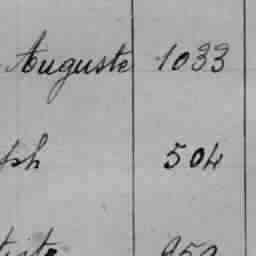 Auguste 1033
ph 504